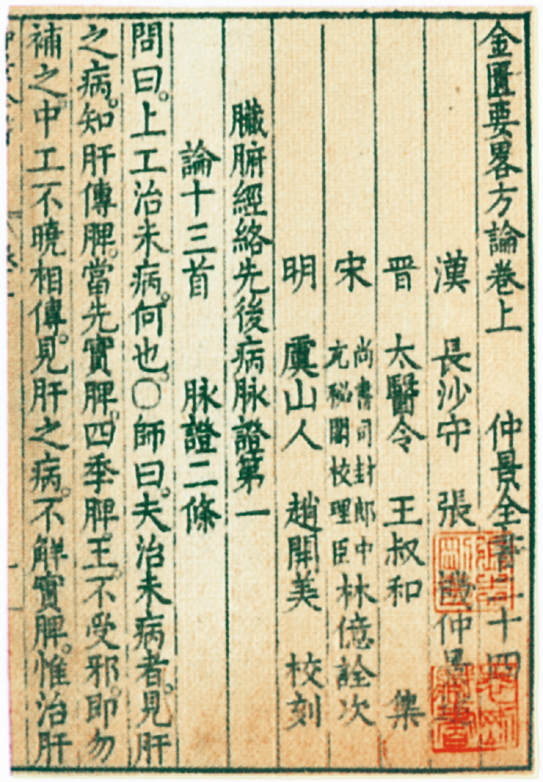 金匱要畧方論卷上 仲景全書二十四
漢 長沙守 張 機仲景述
晉 太醫令 王叔和 集
宋 尚書司封郎中充秘閣校理臣林億詮次
明 虞山人 趙開美 校刻
臟腑經絡先後病脉證第一
論十三首 脉證二條
問曰。上工治未病。何也。〇師曰。夫治未病者。見肝
之病。知肝傳脾。當先實脾。四季脾王。不受邪。即勿
補之。中工不曉相傳。見肝之病。不解實脾。惟治肝